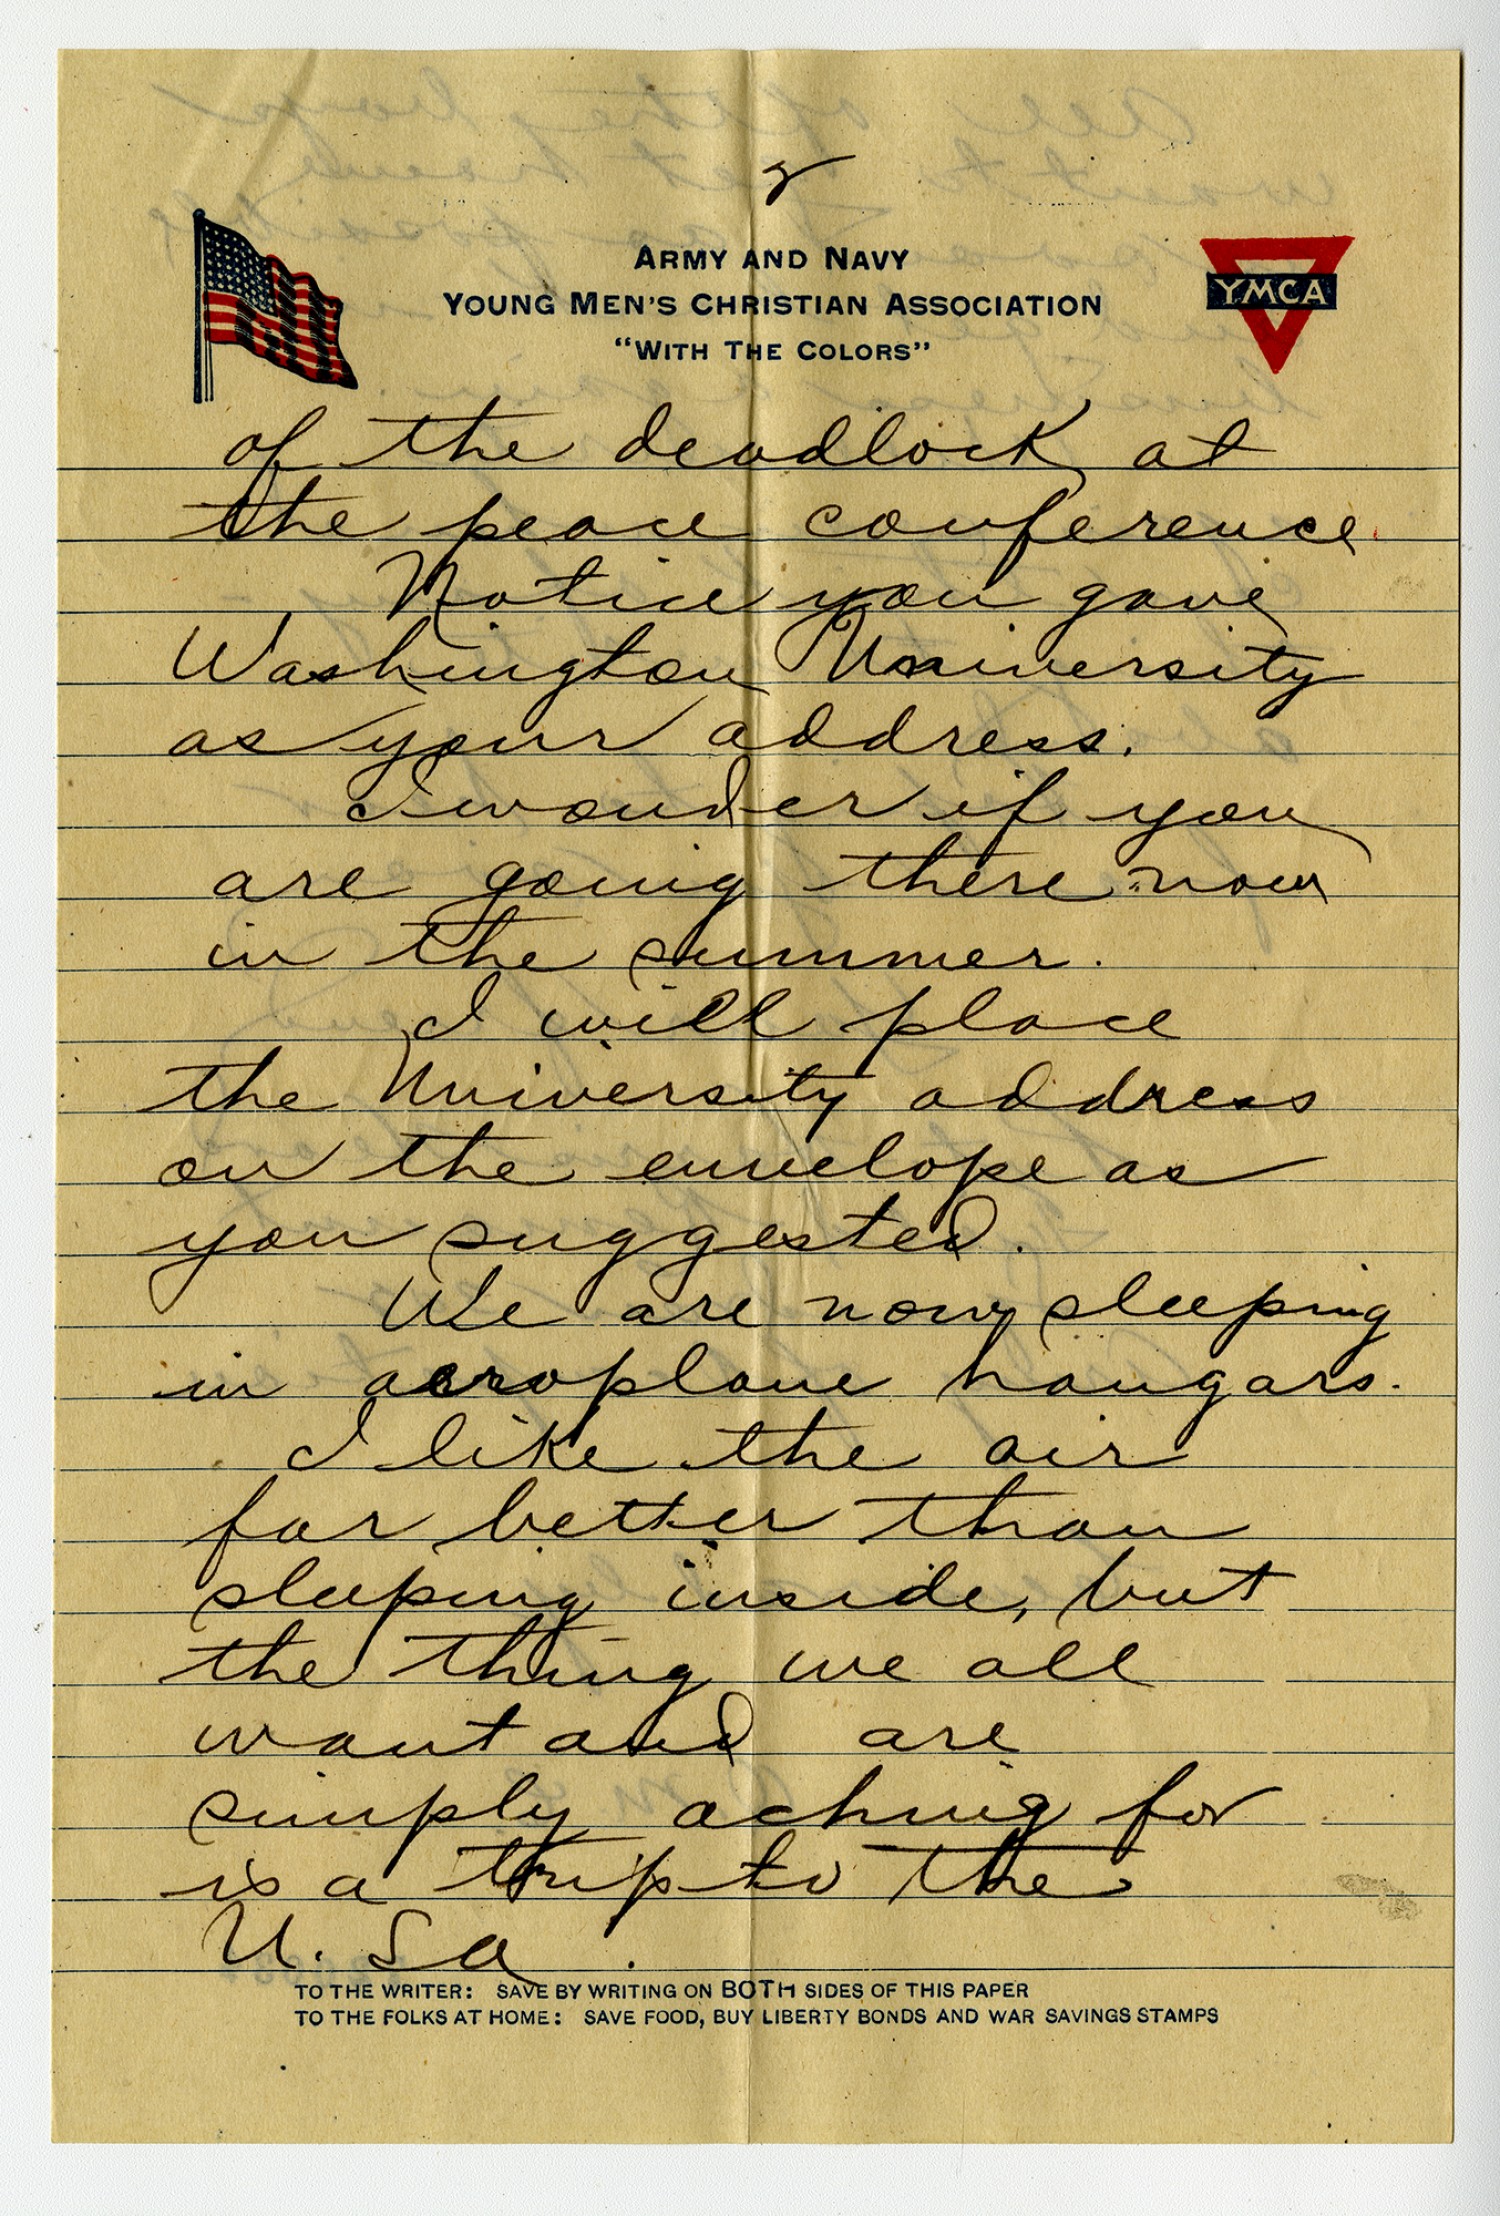 2
ARMY AND NAVY
YOUNG MEN'S CHRISTIAN ASSOCIATION
"WITH THE COLORS"
YMCA
of the deadlock at
the peace conference
Notice you gave
Washington University
as your address.
I wonder if you
are going there now
in the summer.
I will place
the University address
on the envelope as
you suggested.
We are now sleeping
in aeroplane hangars.
I like the air
far better than
sleeping inside, but
the thing we all
want and are
simply aching for
is a trip to the
U. Sa.
TO THE WRITER: SAVE BY WRITING ON BOTH SIDES OF THIS PAPER
TO THE FOLKS AT HOME: SAVE FOOD, BUY LIBERTY BONDS AND WAR SAVINGS STAMPS